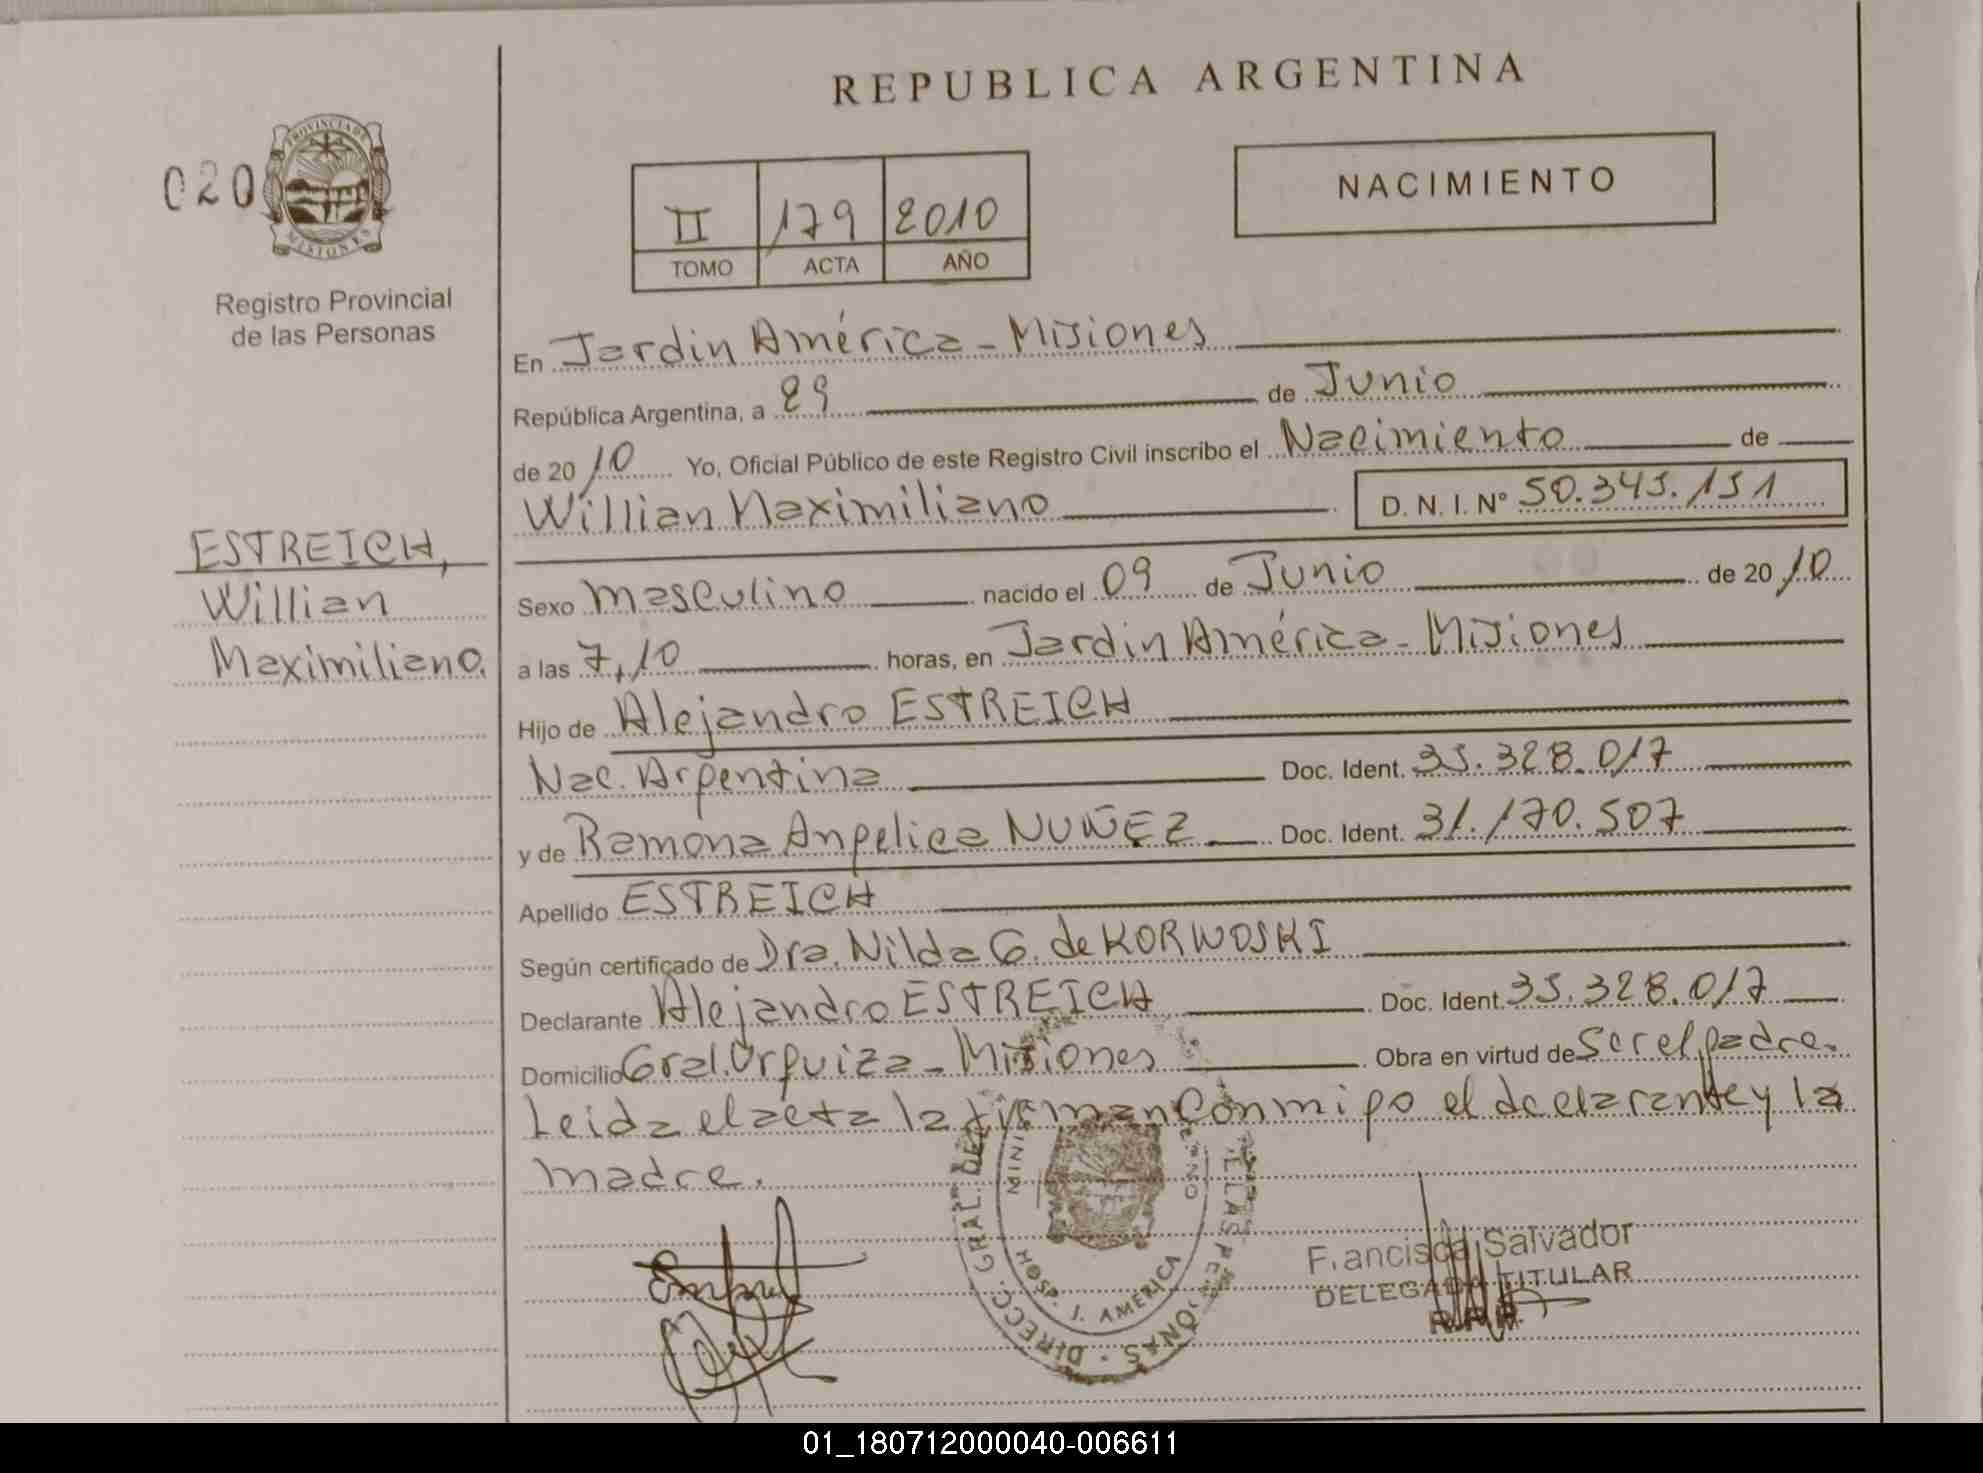 REPUBLICA ARGENTINA
020
PROVINCIA DE
MISIONES
Registro Provincial
de las Personas
II 179 2010
TOMO ACTA AÑO
NACIMIENTO
En Jardin América - Misiones
República Argentina, a 29 de Junio
de 2010 Yo, Oficial Público de este Registro Civil inscribo el Nacimiento de
Willian Maximiliano D. N. I. N° 50.343.151
ESTREICH,
Willian
Maximiliano.
Sexo masculino nacido el 09 de Junio de 2010
a las 7,10 horas, en Jardin América - Misiones
Hijo de Alejandro ESTREICH
Nac. Argentina Doc. Ident. 35.328.017
y de Ramona Angelica NUÑEZ Doc. Ident. 31.170.507
Apellido ESTREICH
Según certificado de Dra. Nilda G. de KORWOSKI
Declarante Alejandro ESTREICH Doc. Ident. 35.328.017
Domicilio Gral. Urquiza - Misiones Obra en virtud de Ser el padre.
Leida el acta la firman conmigo el declarante y la
madre.
DIRECC. GRAL. DE
HOSP. J. AMERICA
Francisca Salvador
DELEGADA TITULAR
R.P.P.
01_180712000040-006611